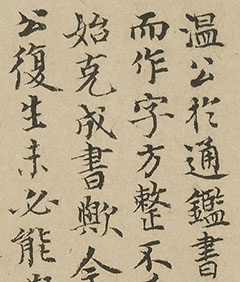 温公於通鑑書
而作字方整不
始克成書歟今
公復生未必能